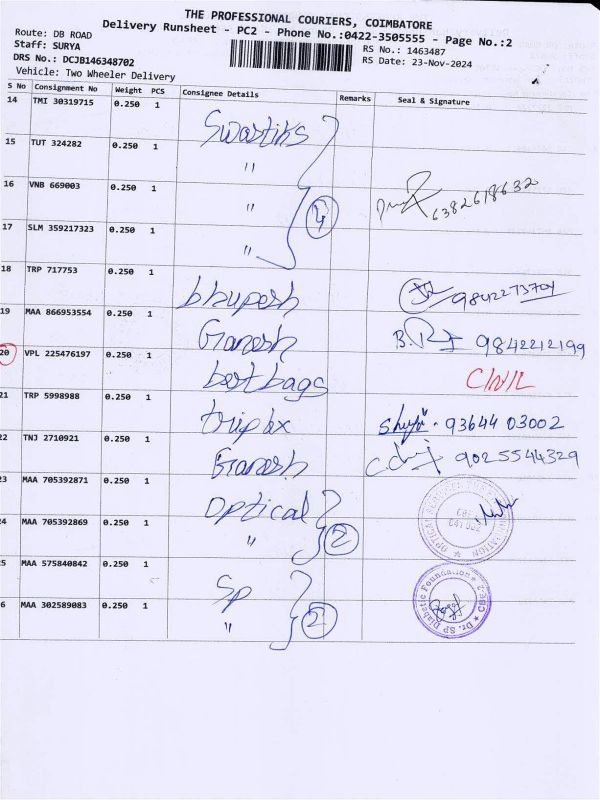 THE PROFESSIONAL COURIERS, COIMBATORE
Delivery Runsheet - PC2 - Phone No.:0422-3505555 - Page No.:2
Route: DB ROAD
Staff: SURYA
RS No.: 1463487
DRS No.: DCJB146348702
RS Date: 23-Nov-2024
Vehicle: Two Wheeler Delivery
S No Consignment No Weight PCS Consignee Details Remarks Seal & Signature
14 TMI 30319715 0.250 1 Swastiks
15 TUT 324282 0.250 1 "
16 VNB 669003 0.250 1 " 4 6382618632
17 SLM 359217323 0.250 1 "
18 TRP 717753 0.250 1 bhupesh 9842273704
19 MAA 866953554 0.250 1 Ganesh 9842212199
20 VPL 225476197 0.250 1 best bags
21 TRP 5998988 0.250 1 triplex 93644 03002
22 TNJ 2710921 0.250 1 Ganesh 9025544329
3 MAA 705392871 0.250 1 Optical
4 MAA 705392869 0.250 1 " 2
5 MAA 575840842 0.250 1 Sp
6 MAA 302589083 0.250 1 " 2
Dr. SP Diabetic Foundation